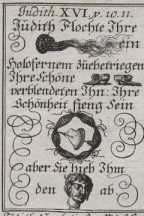 Judith XVI. v. 10. 11.
Judith Flochte Ihre
ein
Holofernem Zuebetriegen
Ihre Schöne
verblendeten Ihn: Ihre
Schönheit fieng Sein
aber Sie hieb Ihm
den ab